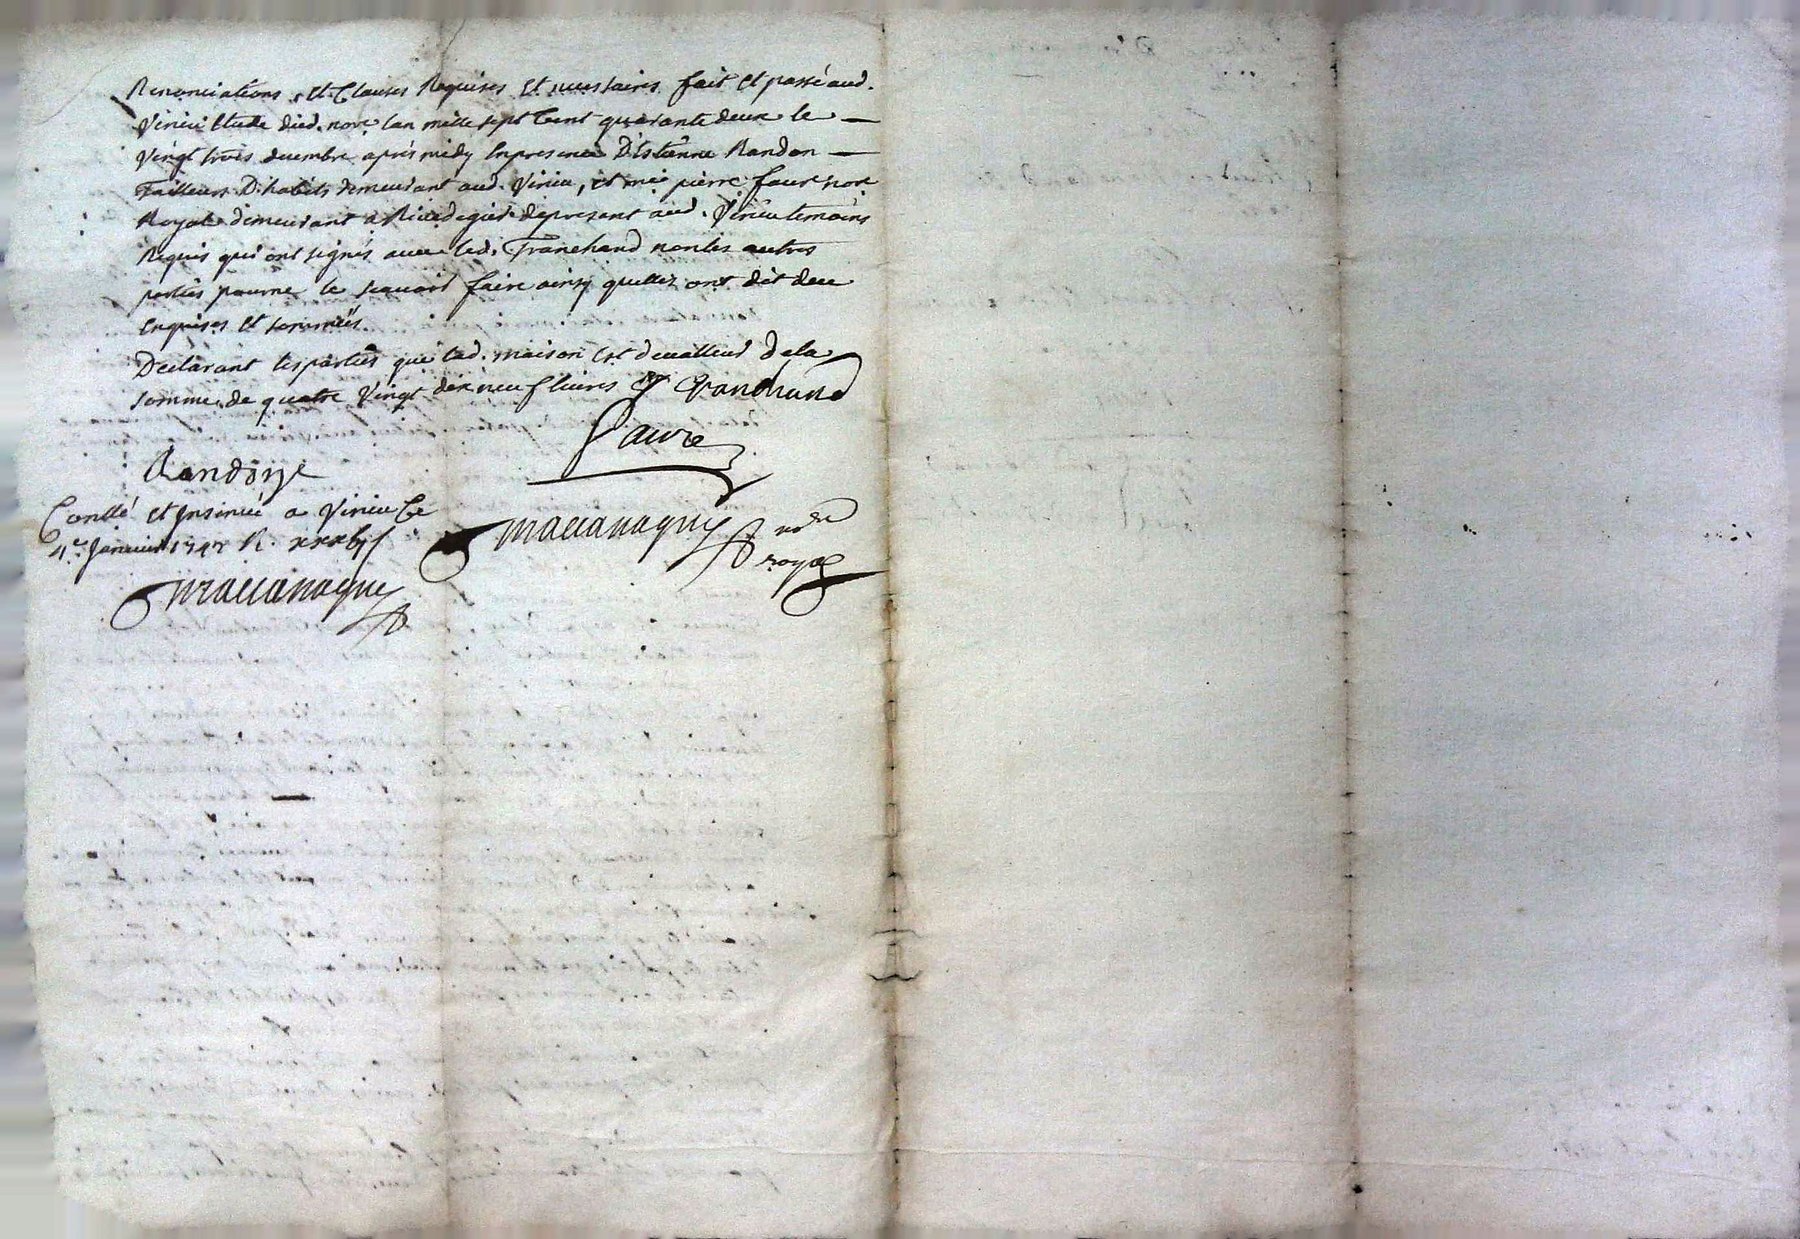 Renonciations, et Clauses Requises et necessaires fait et passé aud.
Virieu Etude dud. nore lan mille sept Cent quarante deux le —
Vingt trois decembre après midy En presence D'Estienne Randon —
Tailleur D'habits demeurant aud. Virieu, et me pierre faure nore
Royal demeurant a Rivedegier de present aud. Virieu temoins
Requis qui ont signés avec led. Tranchand non les autres
parties pour ne le scavoir faire ainsy quelles ont dit de ce
Enquises et sommées
Declarant les parties que lad. maison est de valleur de la
somme de quatre Vingt dix neuf livres Tranchand
faure
Randon
Conllé et Insinué a Virieu Ce
4e Janvier 1743 R.
maccanaguy nore
royal
maccanaguy